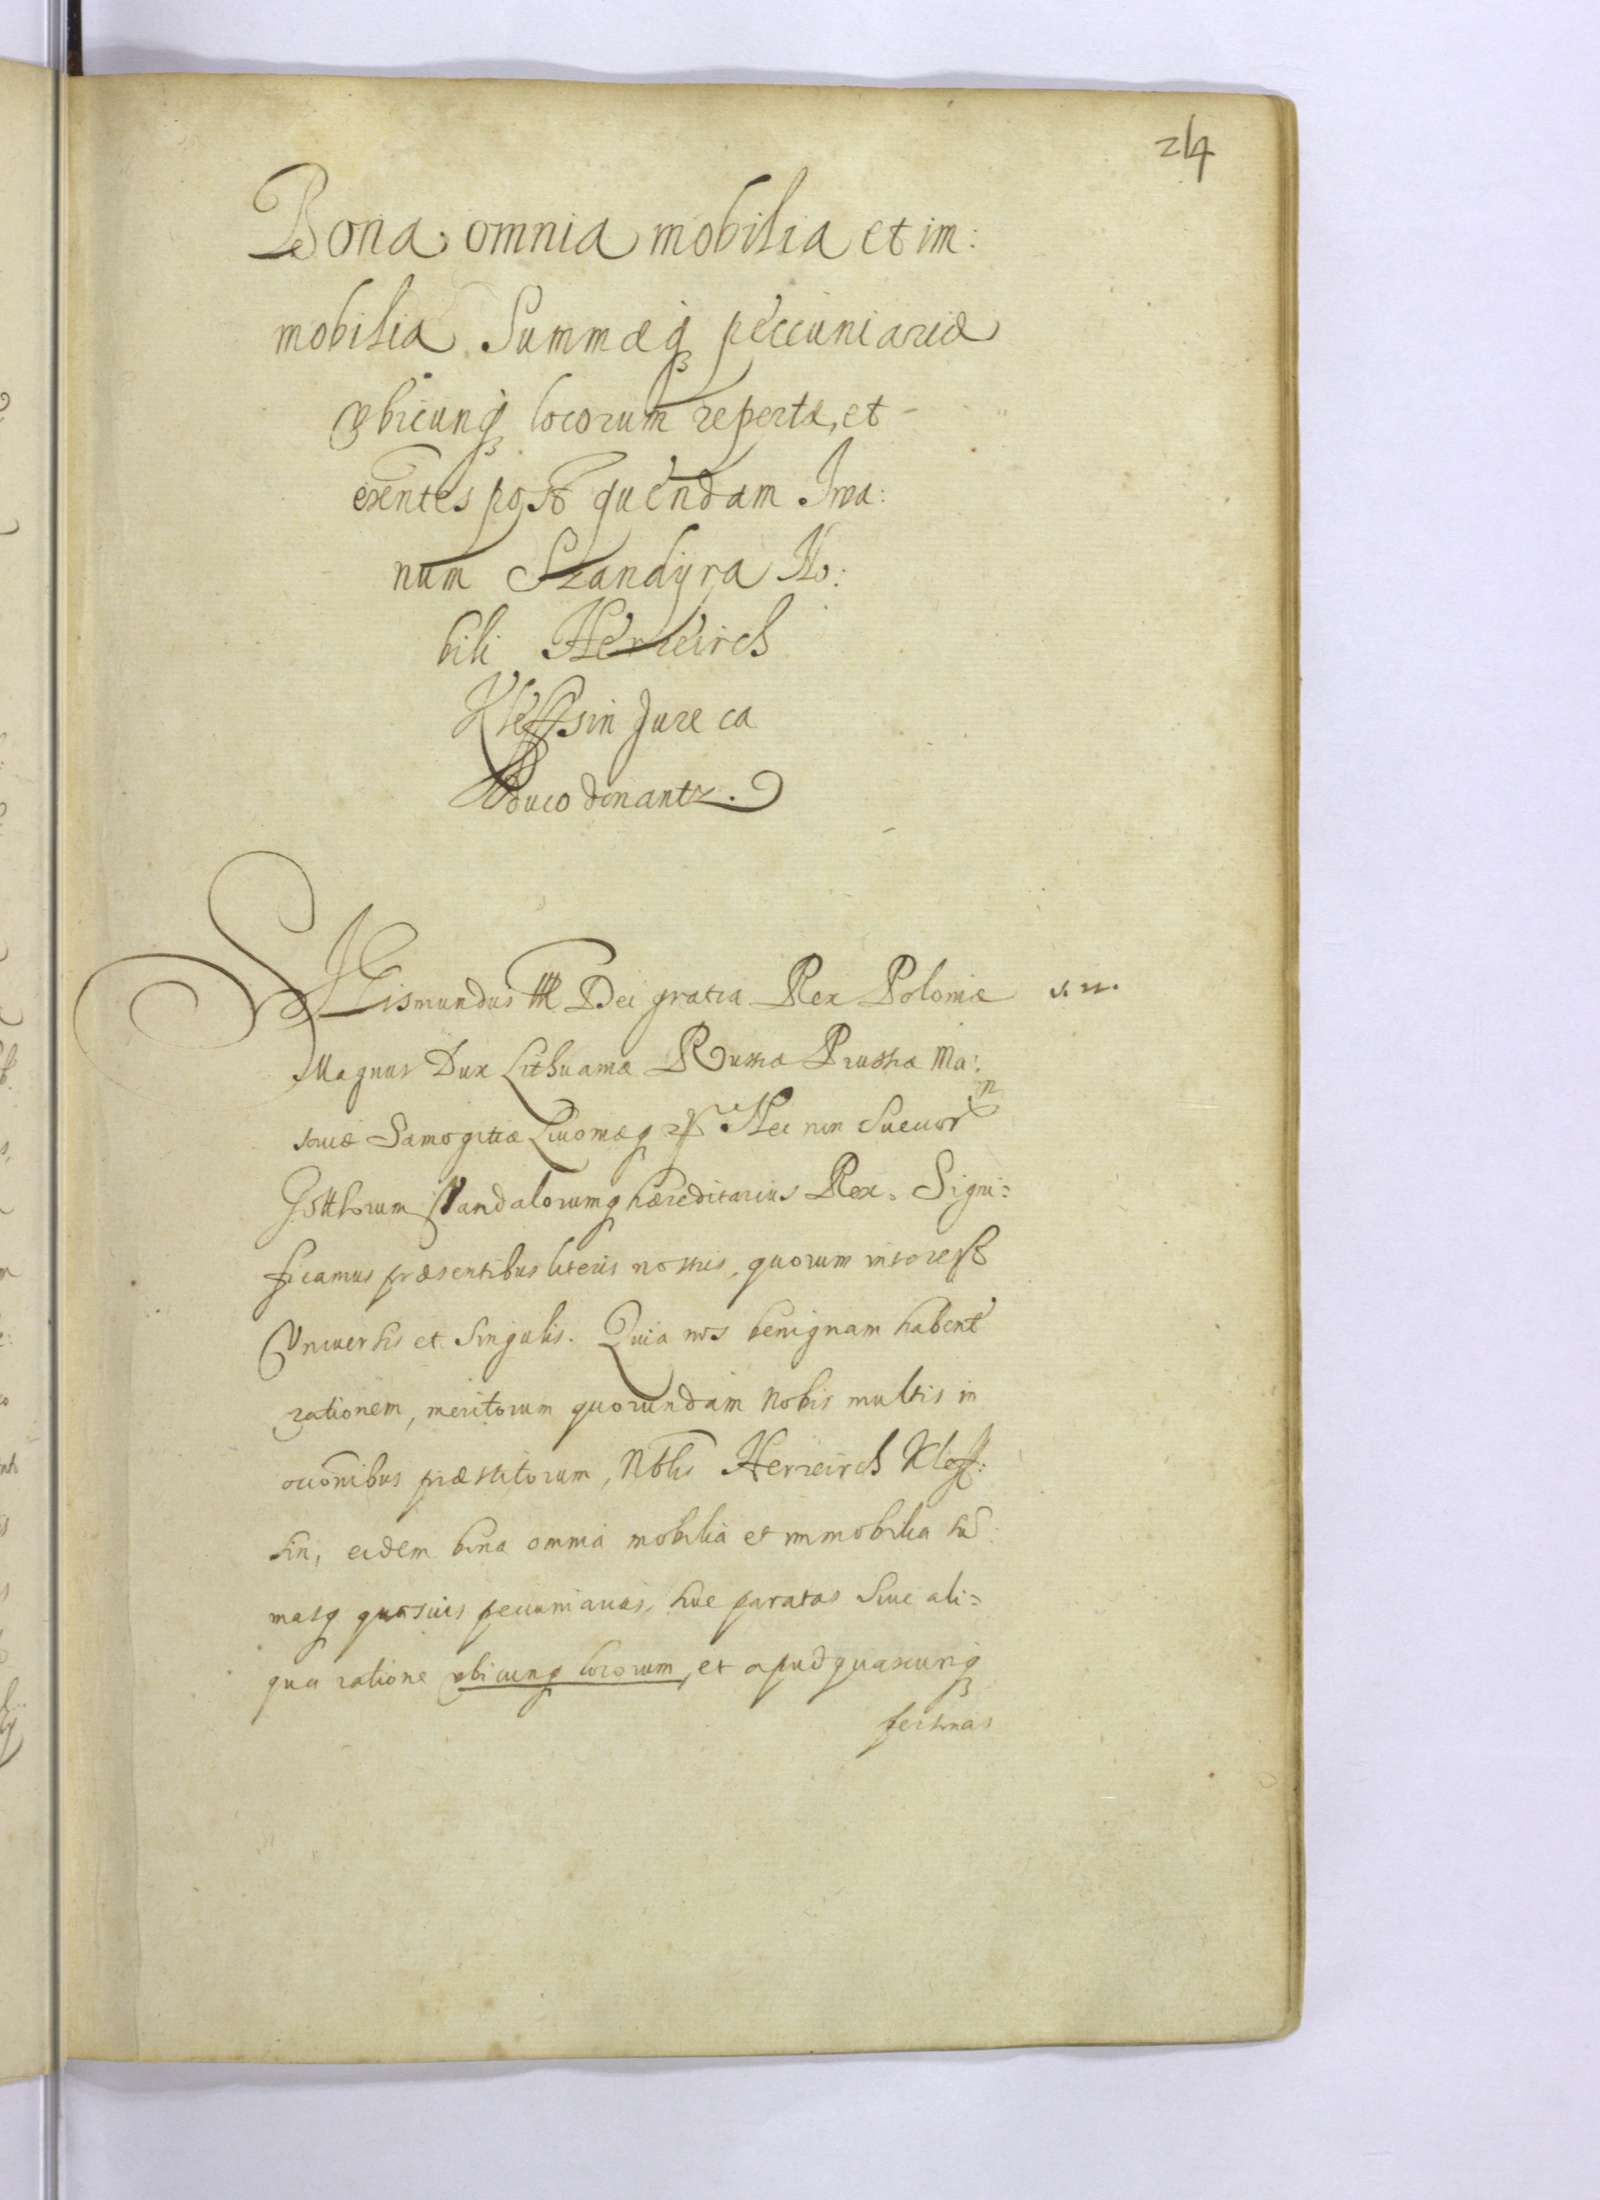 24
Bona omnia mobilia et im:
mobilia Summæq peccuniariæ
vbicunq locorum repertæ, et
exentes post quendam Iwa:
num Szandyra No:
bili Herzeirch
Kleffsin Jure ca
duco donantr.
Sigismundus III Dei gratia Rex Poloniæ
Magnus Dux Lithuaniæ Russiæ Prussiæ Ma:
souiæ Samogitiæ Liuoniæq Nec non Sueuor
Gotthorum Vandalorumq hæreditarius Rex. Signi:
ficamus præsentibus literis nostris, quorum interest
Vniuersis et Singulis. Quia nos benignam habente
rationem, meritorum quorundam nobis multis in
occonibus præstitorum, Nblis Herzeirch Kleff:
sin, eidem bona omnia mobilia et immobilia Su
masq quasuis pecuniarias, siue paratas Siue ali=
qua ratione vbicunq locorum, et apud quascunq
personas